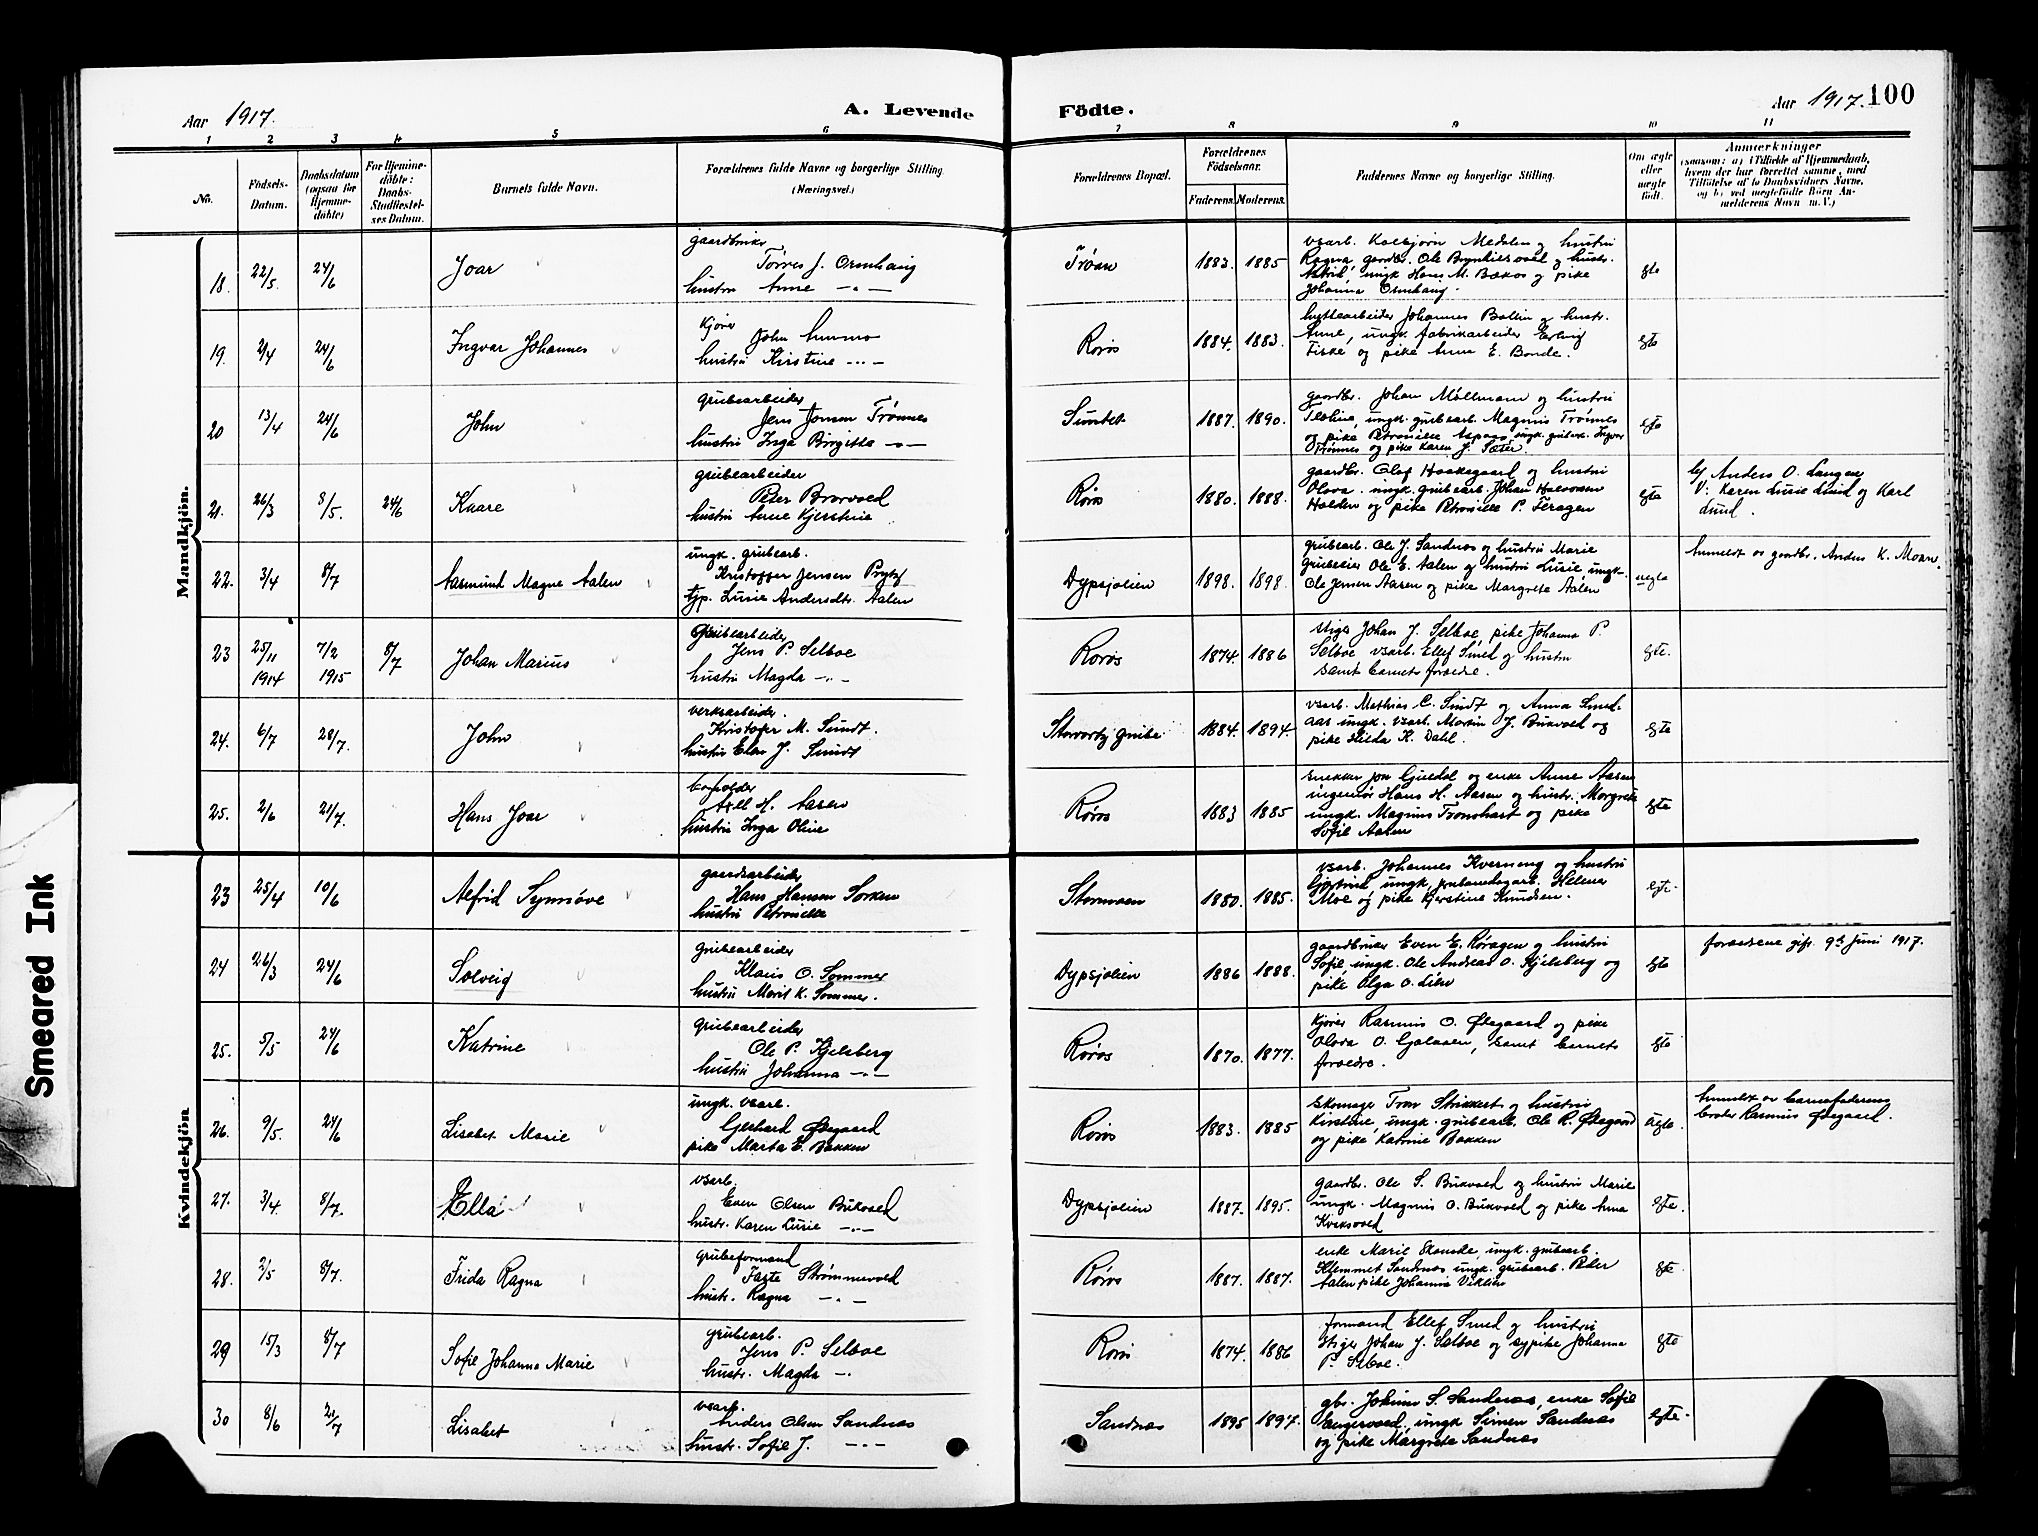 Aar 1917.
A. Levende
Födte.
Aar 1917. 100
1 2 3 4 5 6 7 8 9 10 11
No.
Födsels-
Datum.
Daabsdatum
(ogsaa for
Hjemme-
døbte)
For Hjemme-
döbte:
Daabs-
Stadfæstel-
ses Datum.
Barnets fulde Navn.
Forældrenes fulde Navne og borgerlige Stilling
(Næringsvei.)
Forældrenes Bopæl.
Forældrenes
Födselsaar.
Faderens. Moderens.
Faddernes Navne og borgerlige Stilling.
Om ægte
eller
uægte
födt.
Anmærkninger
(saasom: a) i Tilfælde af Hjemmedaab,
hvem der har forrettet samme, med
Tilföielse af to Daabsvidners Navne,
og b) ved uægtefödte Börn An-
melderens Navn m. V.)
Mandkjön.
18. 22/5. 24/6 Joar
gaardbruker
Tørres J. Ormhaug
hustru Anne -"-
Trøan 1883. 1885
vsarb. Kolbjørn Medalen og hustru
Ragna, gaardbr. Ole Brynhildsvold og hustr.
Astrid, ungk. Hans M. Bækos og pike
Johanna Ormhaug.
egte
19. 2/4 24/6 Ingvar Johannes
Kjører
John
hustru Kirstine -"-
Røros 1884. 1883.
hyttearbeider Johannes Bollin og hustr.
Anne, ungk. fabrikarbeider Erling
Fiske og pike Anna E. Bonde.
egte
20 13/4 24/6 John
grubearbeider
Jens Jensen Trønnes
hustru Inga Birgitte -"-
Sundet 1887. 1890.
gaardbr. Johan Møllmann og hustru
ungk. grubearb. Magnus Trønnes
og pike Petronille Aspaas, ungk. grubearb. Ingvar
Trønnes og pike Karen J. Sæter.
egte
21. 26/3 8/5. 24/6 Kaare
grubearbeider
Peter Brovold
hustru Anne Kjerstine
Røros 1880. 1888.
gaardbr. Olaf Haakagaard og hustru
Olova, ungk. grubearb. Johan Halvorsen
Holden og pike Petronille P. Feragen
egte
Anders O. Langen
V: Karen Lusie Lund og Karl
Lund.
22. 3/4 8/7 Aasmund Magne Aalen
ungk. grubearb.
Kristoffer Jensen Prytz
tjp. Lusie Andersdtr. Aalen
Dypsjølien 1898. 1898.
grubearb. Ole J. Sandnes og hustru Marie
Grubeeier Ole E. Aalen og hustru Lusie ungk.
Ole Jensen Aasen og pike Margrete Aalen
uegte
Anmeldt av gaardbr. Anders K. Moan.
23 25/11 1914 7/2 1915 8/7 Johan Marius
Grubearbeider
Jens P. Selboe
hustru Magda -"-
Røros 1874. 1886
stiger Johan J. Selboe, pike Johanna P.
Selboe vsarb. Ellef Smed og hustru
samt barnets forældre.
egte.
24. 6/7 28/7. John
verksarbeider.
Kristofer M. Sundt.
hustru Elen J. Sundt
Storvartz grube 1884. 1894.
vsarb. Mathias C. Sundt og Anna Smed-
aas ungk. vsarb. Martin J. Bukvold og
pike Hilda K. Dahl.
egte
25. 2/6 21/7. Hans Joar
Axel H. Aasen
hustru Inga Oline
Røros 1883 1885
snekker Jon Gjeldal og enke Anne Aasen
ingeniør Hans H. Aasen og hustr. Margrete
ungk. Magnus Tronshart og pike
Sofie Aalen
egte
Kvindekjön
23 25/4 10/6 Alfrid Synnøve
gaardsarbeider
Hans Hansen Sorken
hustru Petronille
Stormoen 1880. 1885.
vsarb. Johannes Kverneng og hustru
Gjertrud, ungk. Helmer
Moe og pike Kjerstine Knudsen.
egte.
24 26/3 24/6 Solveig
Grubearbeider
Klaus O. Sommer
hustru Marit K. Sommer.
Dypsjølien 1886 1888.
gaardbruker Even E. Røragen og hustru
Sofie, ungk. Ole Andreas O. Kjelsberg og
pike Olga O. Lien
egte
forældrene gift 9d Juni 1917.
25. 5/5 24/6 Katrine
Grubearbeider
Ole P. Kjelsberg
hustru Johanna -"-
Røros 1870. 1877.
Kjører Rasmus O. Ødegaard og pike
Olova O. Galaaen, samt barnets
forældre.
egte
26. 9/5. 24/6 Lisabet Marie
ungk. vsarb.
Gerhard Ødegaard
pike Marta E. Bakken
Røros 1883. 1885
skomager Tron Strikkert og hustru
Kirstine, ungk. grubearb. Ole R. Ødegaard
og pike Katrine Bakken
uegte.
Anmeldt av barnefaderens
broder Rasmus Ødegaard.
27. 3/4. 8/7. Ella
vsarb.
Even Olsen Bukvold
hustr. Karen Lusie -"-
Dypsjølien 1887. 1895.
Gaardbr. Ole S. Bukvold og hustru Marie
ungk. Magnus O. Bukvold og pike Anna
Kviksvold
egte.
28. 2/5 8/7. Frida Ragna
grubeformand
Strømmevold
hustr. Ragna -"-
Røros 1887. 1887.
enke Marie Skanske, ungk. grubearb.
Klemmet Sandnes ungk. grubearb. Peter
Aalen pike Johanna Viklen
egte
29 15/3 8/7 Sofie Johanna Marie
grubearb.
Jens P. Selboe
hustr. Magda -"-
Røros 1874. 1886
formand Ellef Smed og hustru
stiger Johan J. Selboe og sypike Johanna
P. Selboe.
egte
30 8/6 21/7 Lisabet
vsarb.
Anders Olsen Sandnæs
hustr. Sofie J. -"-
Sandnæs 1895 1897.
gbr. Johans S. Sandnæs, enke Sofie
Engesvold, ungk Simen Sandnæs
og pike Margrete Sandnæs
egte.
Smeared Ink